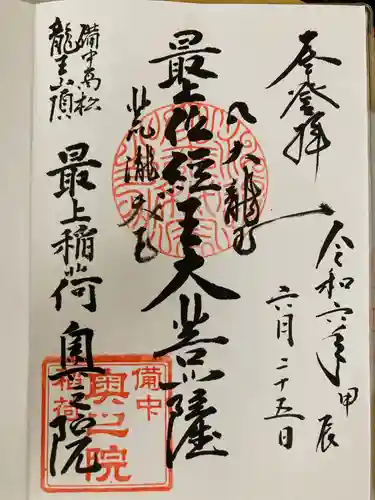 奉登拝
令和六年甲辰
六月二十五日
八大龍王
最上位経王大菩薩
荒瀧天王
備中高松
龍王山頂
最上稲荷 奥之院
備中
奥之院
稲荷